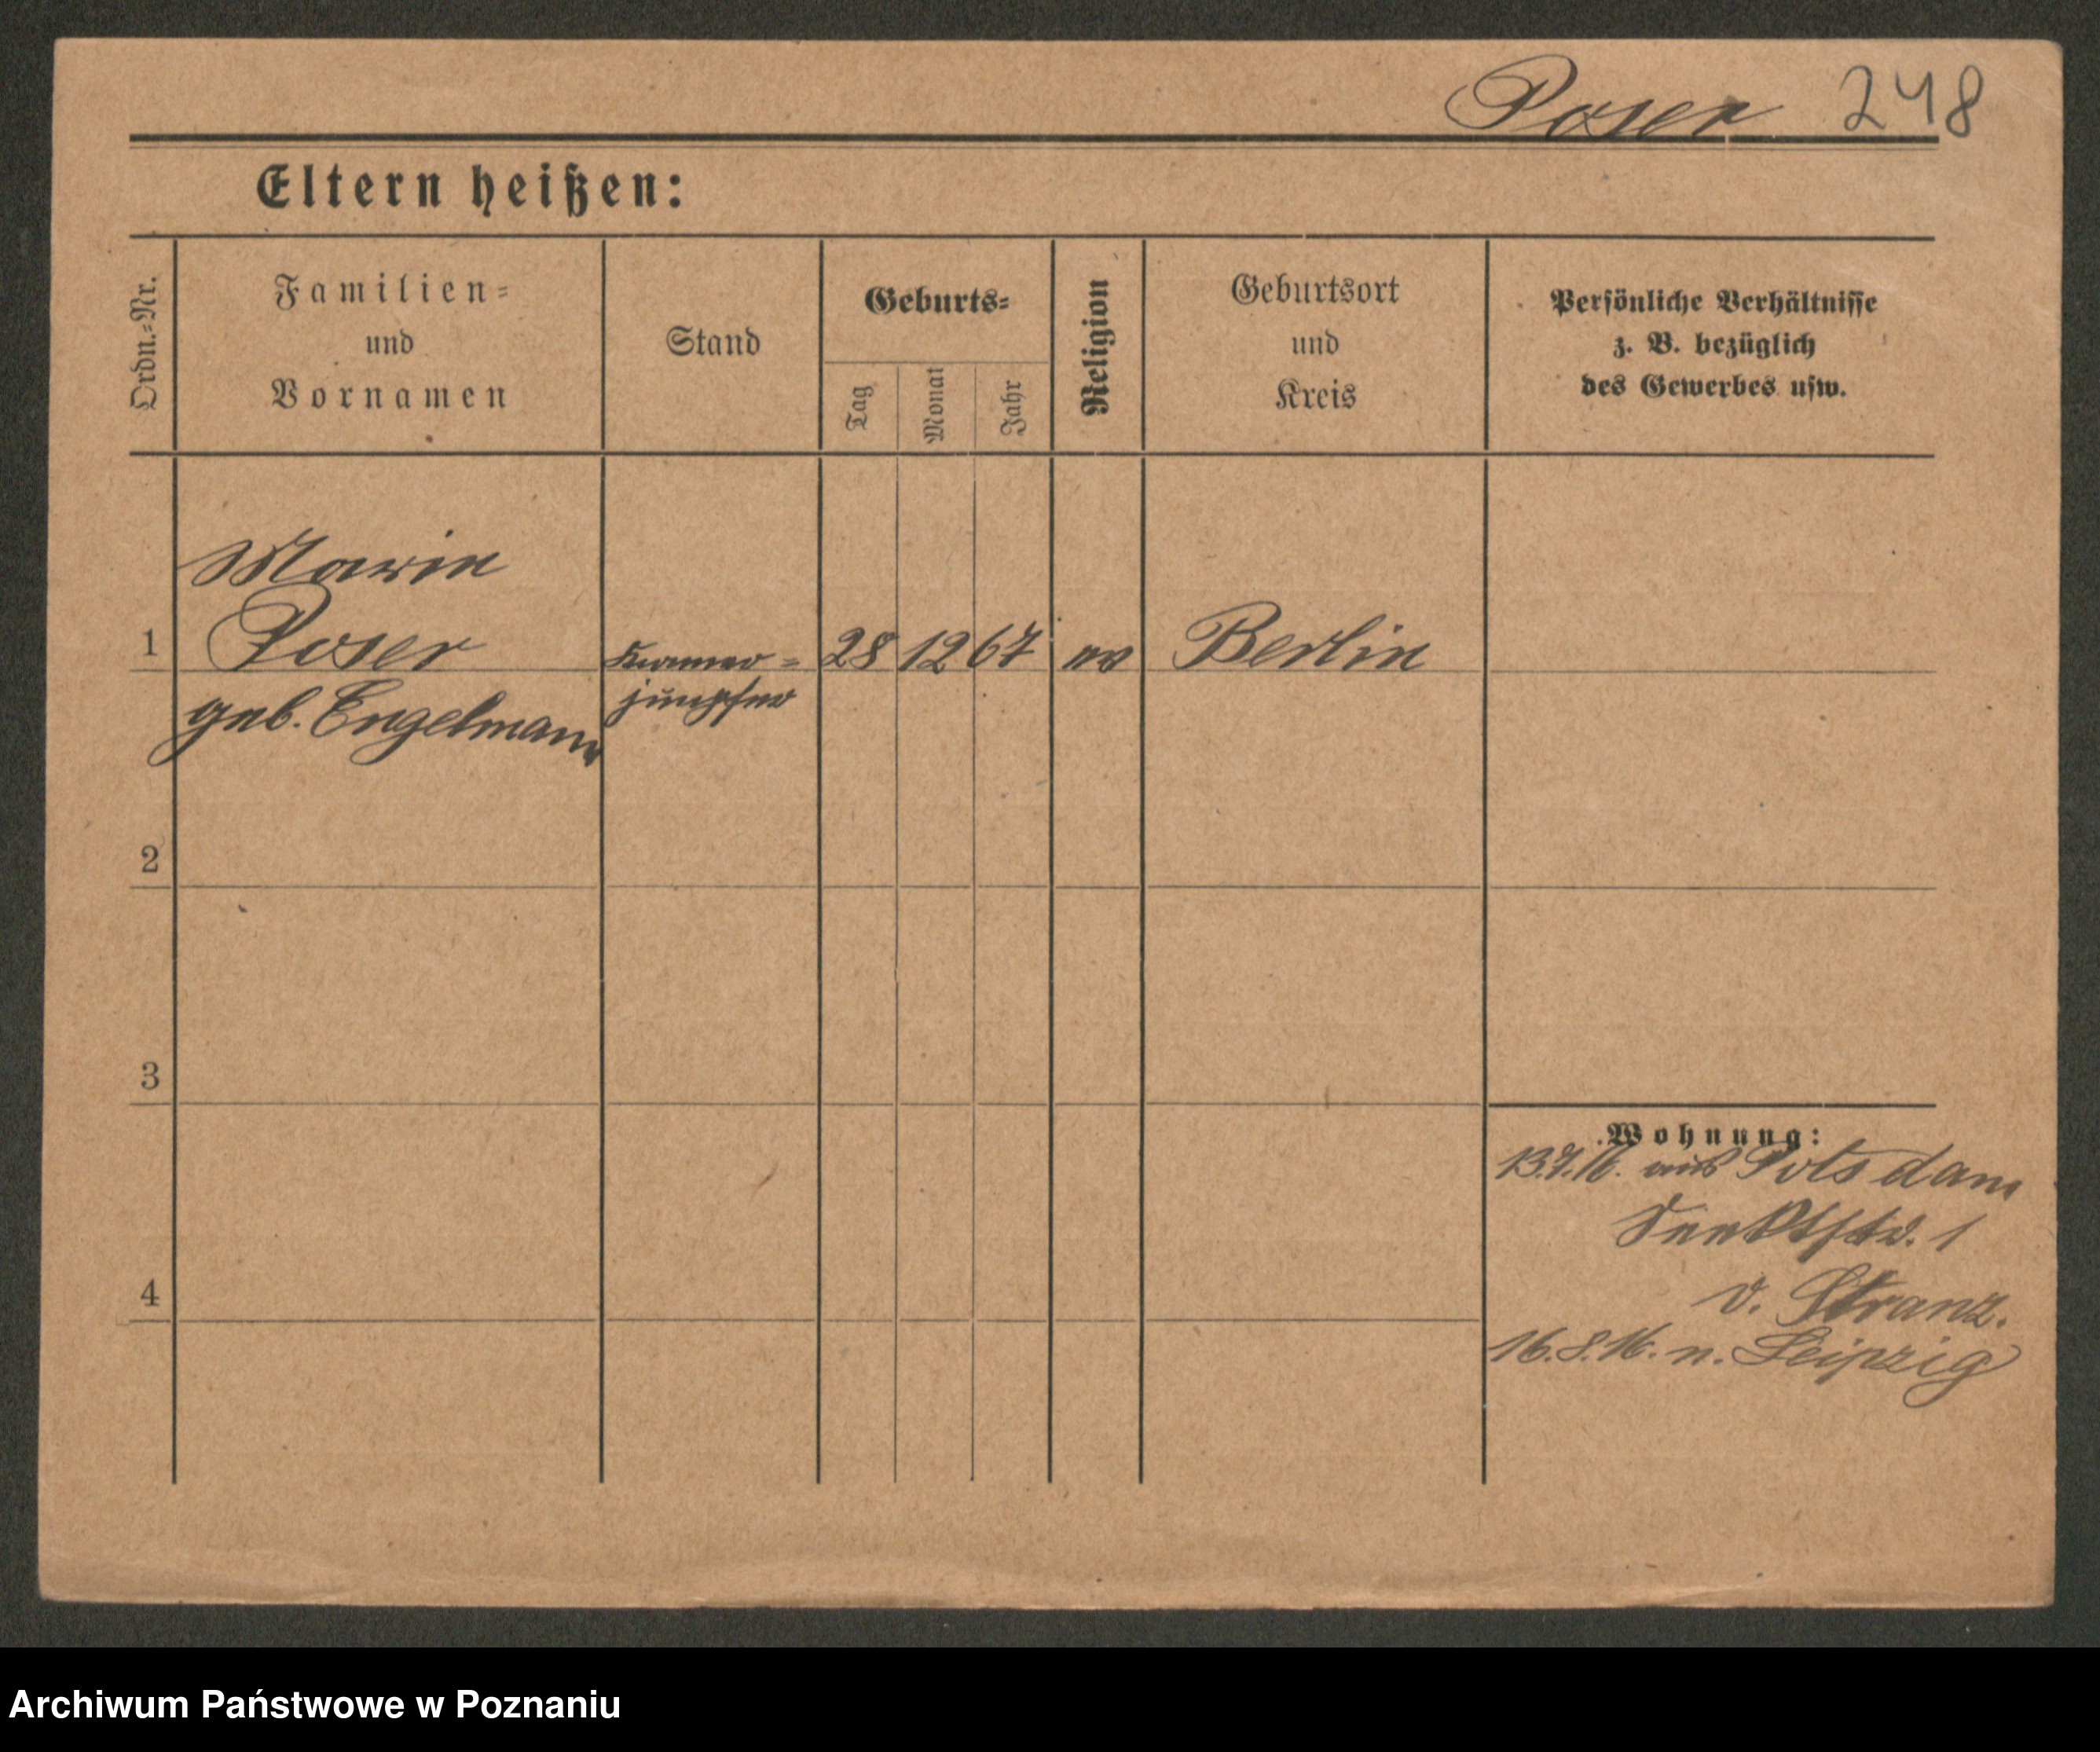 Poser 248
Eltern heißen:
Ordn.-Nr.
Familien-
und
Vornamen
Stand
Geburts-
Tag
Monat
Jahr
Religion
Geburtsort
und
Kreis
Persönliche Verhältnisse
z. B. bezüglich
des Gewerbes usw.
Marie
1 Poser Kammer- 28 12 67 ev Berlin
geb. Engelmann jungfer
2
3
4
Wohnung:
13.7.16. aus Potsdam
1
v. Stranz.
16.8.16. n. Leipzig
Archiwum Państwowe w Poznaniu